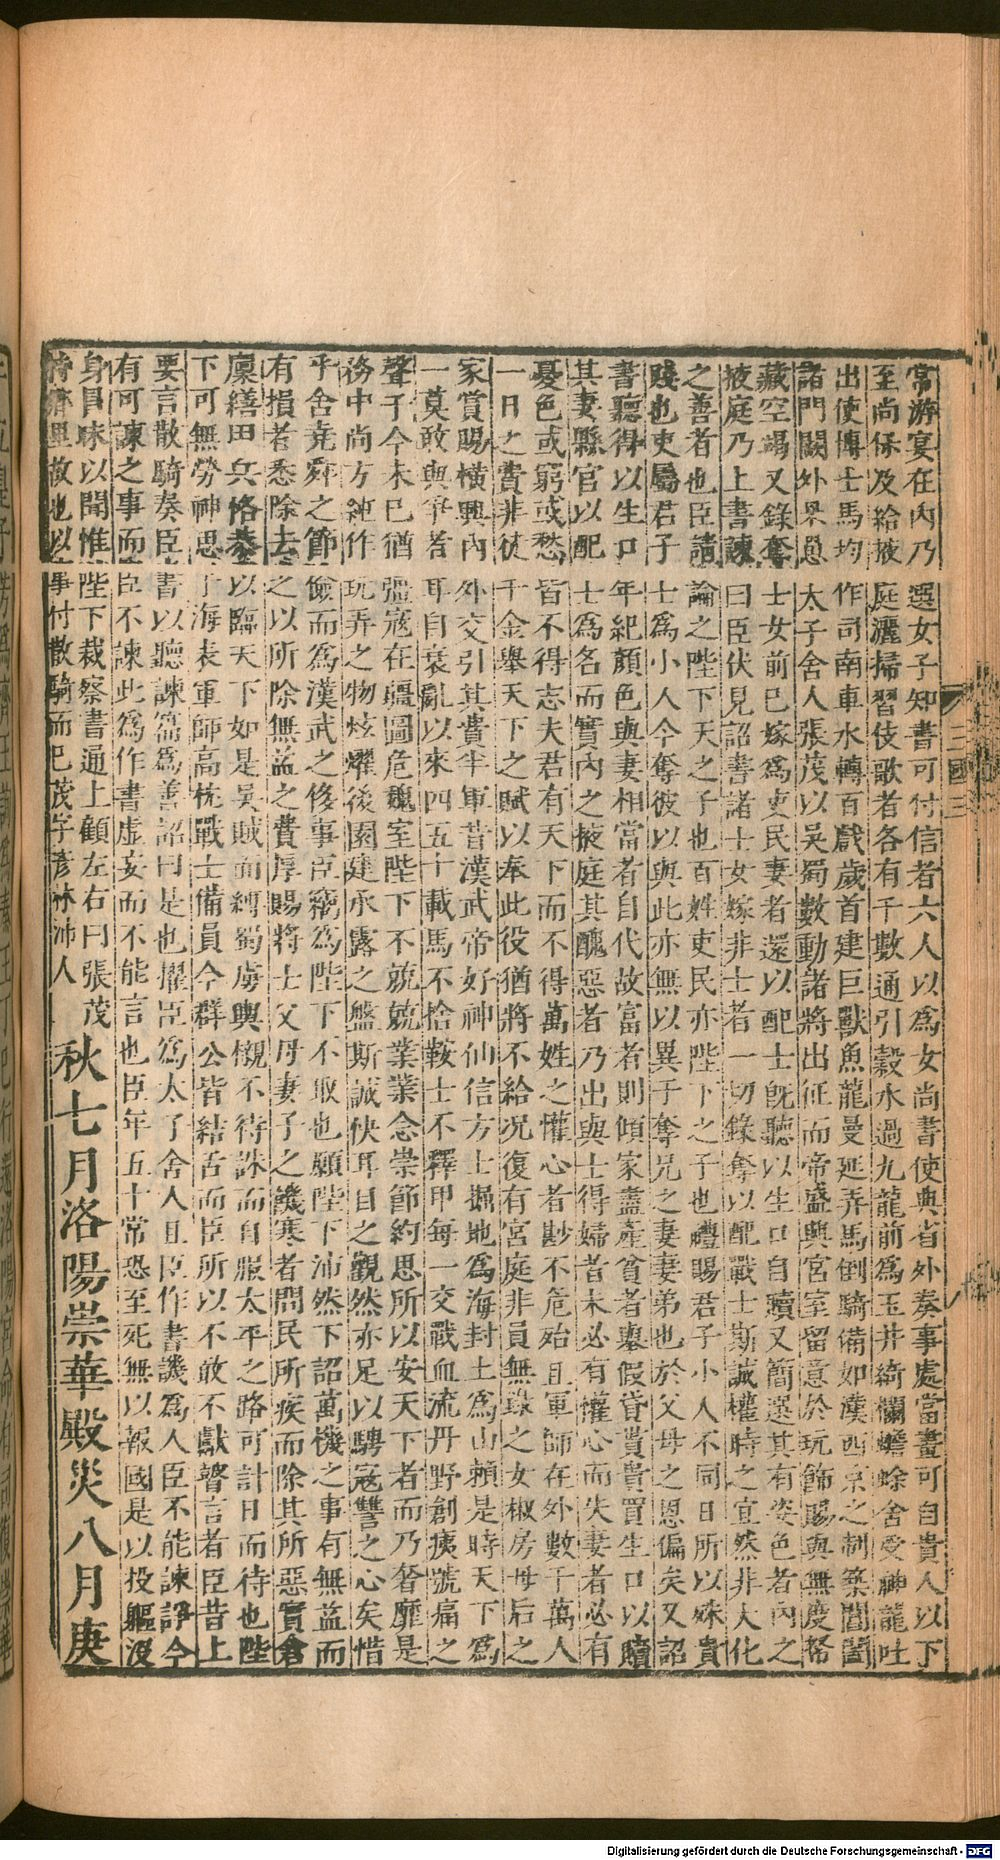 常游宴在內乃選女子知書可付信者六人以爲女尚書使典省外奏事處當畫可自貴人以下
至尚保及給掖庭灑掃習伎歌者各有千數通引穀水過九龍前爲玉井綺欄蟾蜍含受神龍吐
出使博士馬均作司南車水轉百戲歲首建巨獸魚龍曼延弄馬倒騎備如漢西京之制築閶闔
諸門闕外罘罳太子舍人張茂以吳蜀數動諸將出征而帝盛興宮室留意於玩飾賜與無度帑
藏空竭又錄奪士女前已嫁爲吏民妻者還以配士旣聽以生口自贖又簡選其有姿色者內之
掖庭乃上書諫曰臣伏見詔書諸士女嫁非士者一切錄奪以配戰士斯誠權時之宜然非大化
之善者也臣請論之陛下天之子也百姓吏民亦陛下之子也禮賜君子小人不同日所以殊貴
賤也吏屬君子士爲小人今奪彼以與此亦無以異于奪兄之妻妻弟也於父母之恩偏矣又詔
書聽得以生口年紀顏色與妻相當者自代故富者則傾家盡產貧者舉假貸貰貴買生口以贖
其妻縣官以配士爲名而實內之掖庭其醜惡者乃出與士得婦者未必有懽心而失妻者必有
憂色或窮或愁皆不得志夫君有天下而不得萬姓之懽心者尠不危殆且軍師在外數千萬人
一日之費非徒千金舉天下之賦以奉此役猶將不給况復有宮庭非員無錄之女椒房母后之
家賞賜橫興內外交引其費半軍昔漢武帝好神仙信方士掘地爲海封土爲山賴是時天下爲
一莫敢與爭者耳自衰亂以來四五十載馬不捨鞍士不釋甲每一交戰血流丹野創痍號痛之
聲于今未已猶彊寇在疆圖危魏室陛下不兢兢業業念崇節約思所以安天下者而乃奢靡是
務中尚方純作玩弄之物炫燿後園建承露之盤斯誠快耳目之觀然亦足以騁寇讐之心矣惜
乎舍堯舜之節儉而爲漢武之侈事臣竊爲陛下不取也願陛下沛然下詔萬機之事有無益而
有損者悉除去之以所除無益之費厚賜將士父母妻子之饑寒者問民所疾而除其所惡實倉
廩繕甲兵恪恭以臨天下如是吳賊面縛蜀虜輿櫬不待誅而自服太平之路可計日而待也陛
下可無勞神思于海表軍師高枕戰士備員今群公皆結舌而臣所以不敢不獻瞽言者臣昔上
要言散騎奏臣書以聽諫篇爲善詔曰是也擢臣爲太子舍人且臣作書譏爲人臣不能諫諍今
有可諫之事而臣不諫此爲作書虛妄而不能言也臣年五十常恐至死無以報國是以投軀沒
身冒昧以聞惟陛下裁察書通上顧左右曰張茂
恃鄉里故也以事付散騎而已茂字彥林沛人
秋七月洛陽崇華殿災八月庚
三國三
Digitalisierung gefördert durch die Deutsche Forschungsgemeinschaft - DFG